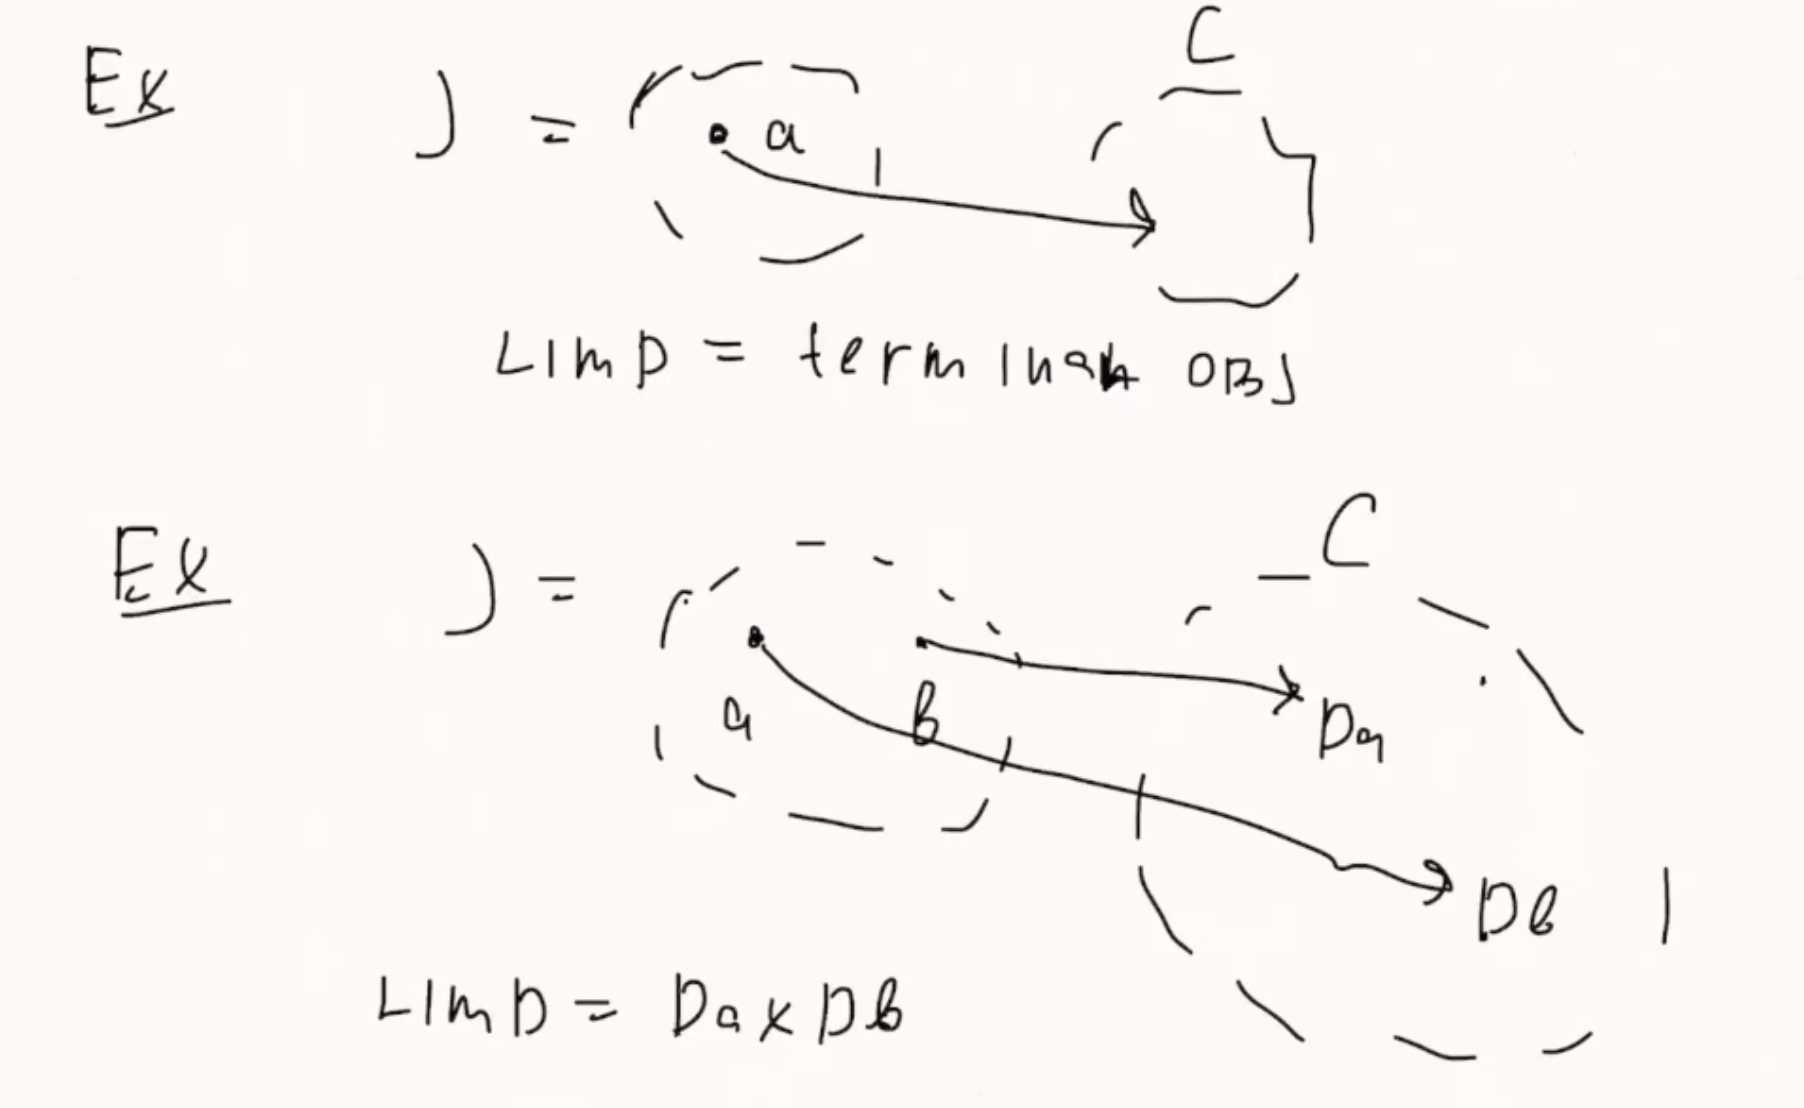 C
Ex J = a
LIM D = terminal OBJ
C
Ex J =
a b Da
Db
LIM D = Da x Db